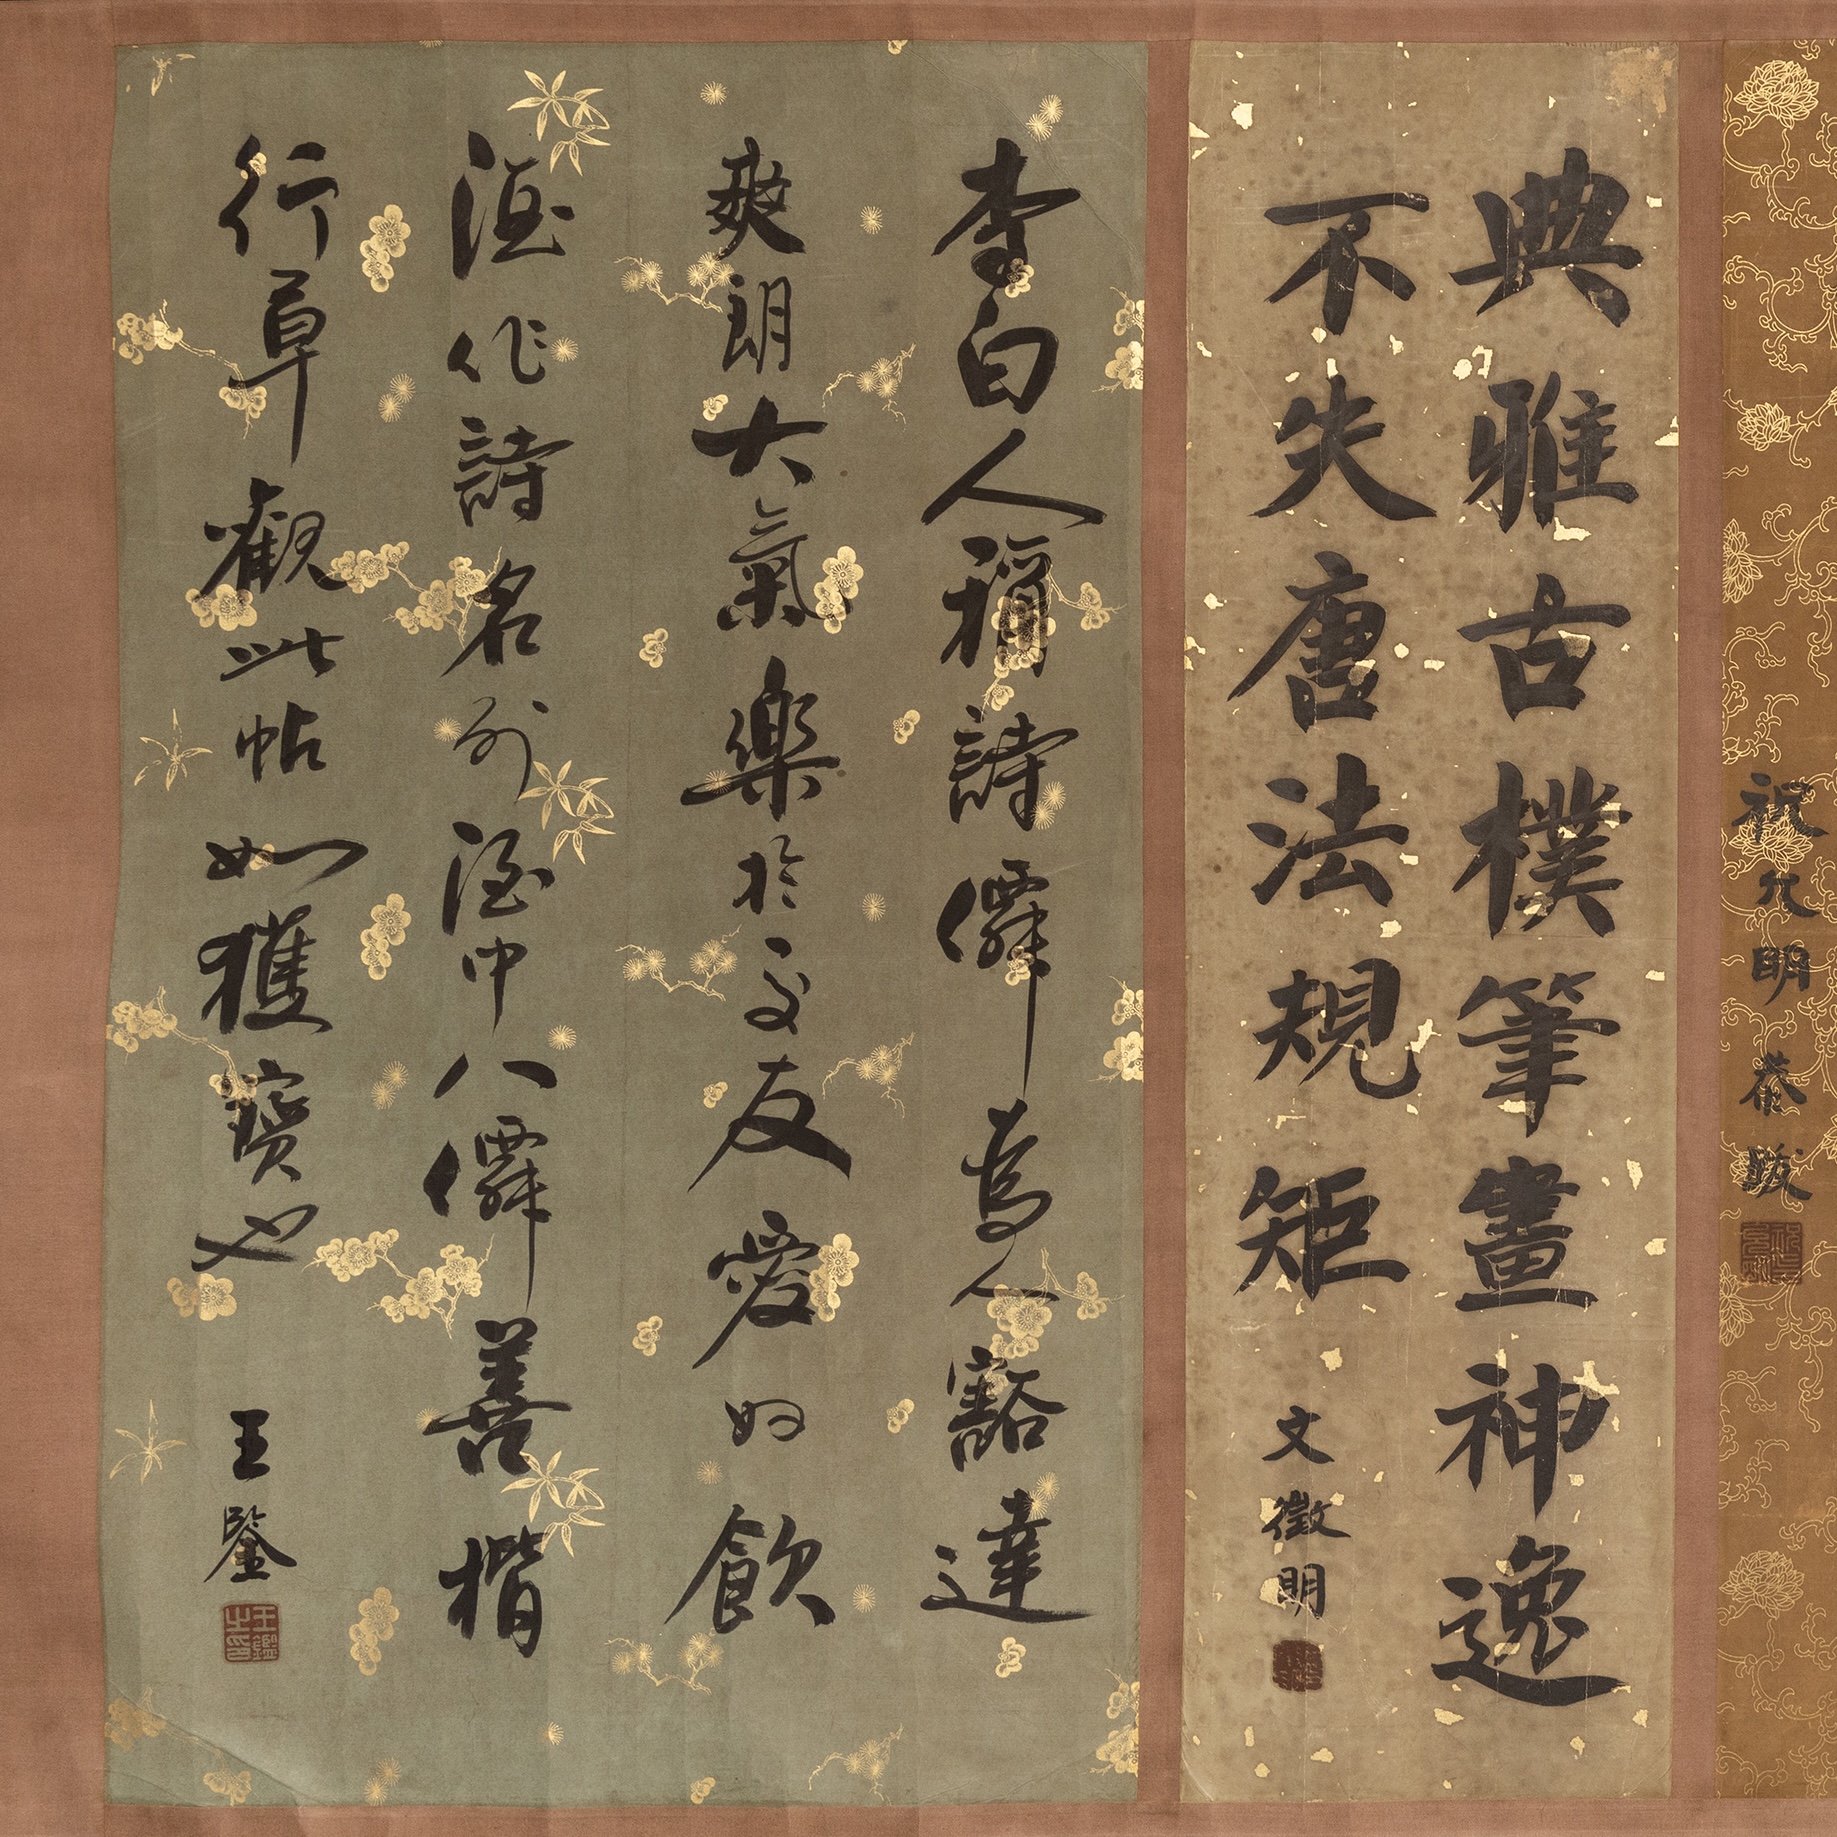 祝允明 恭跋
典雅古樸筆畫神逸
不失唐法規矩 文徵明
李白人稱詩僊為人豁達
爽朗大氣樂於交友愛好飲
酒作詩名列酒中八僊善楷
行草觀此帖如獲寶也 王鑒
王鑑之印